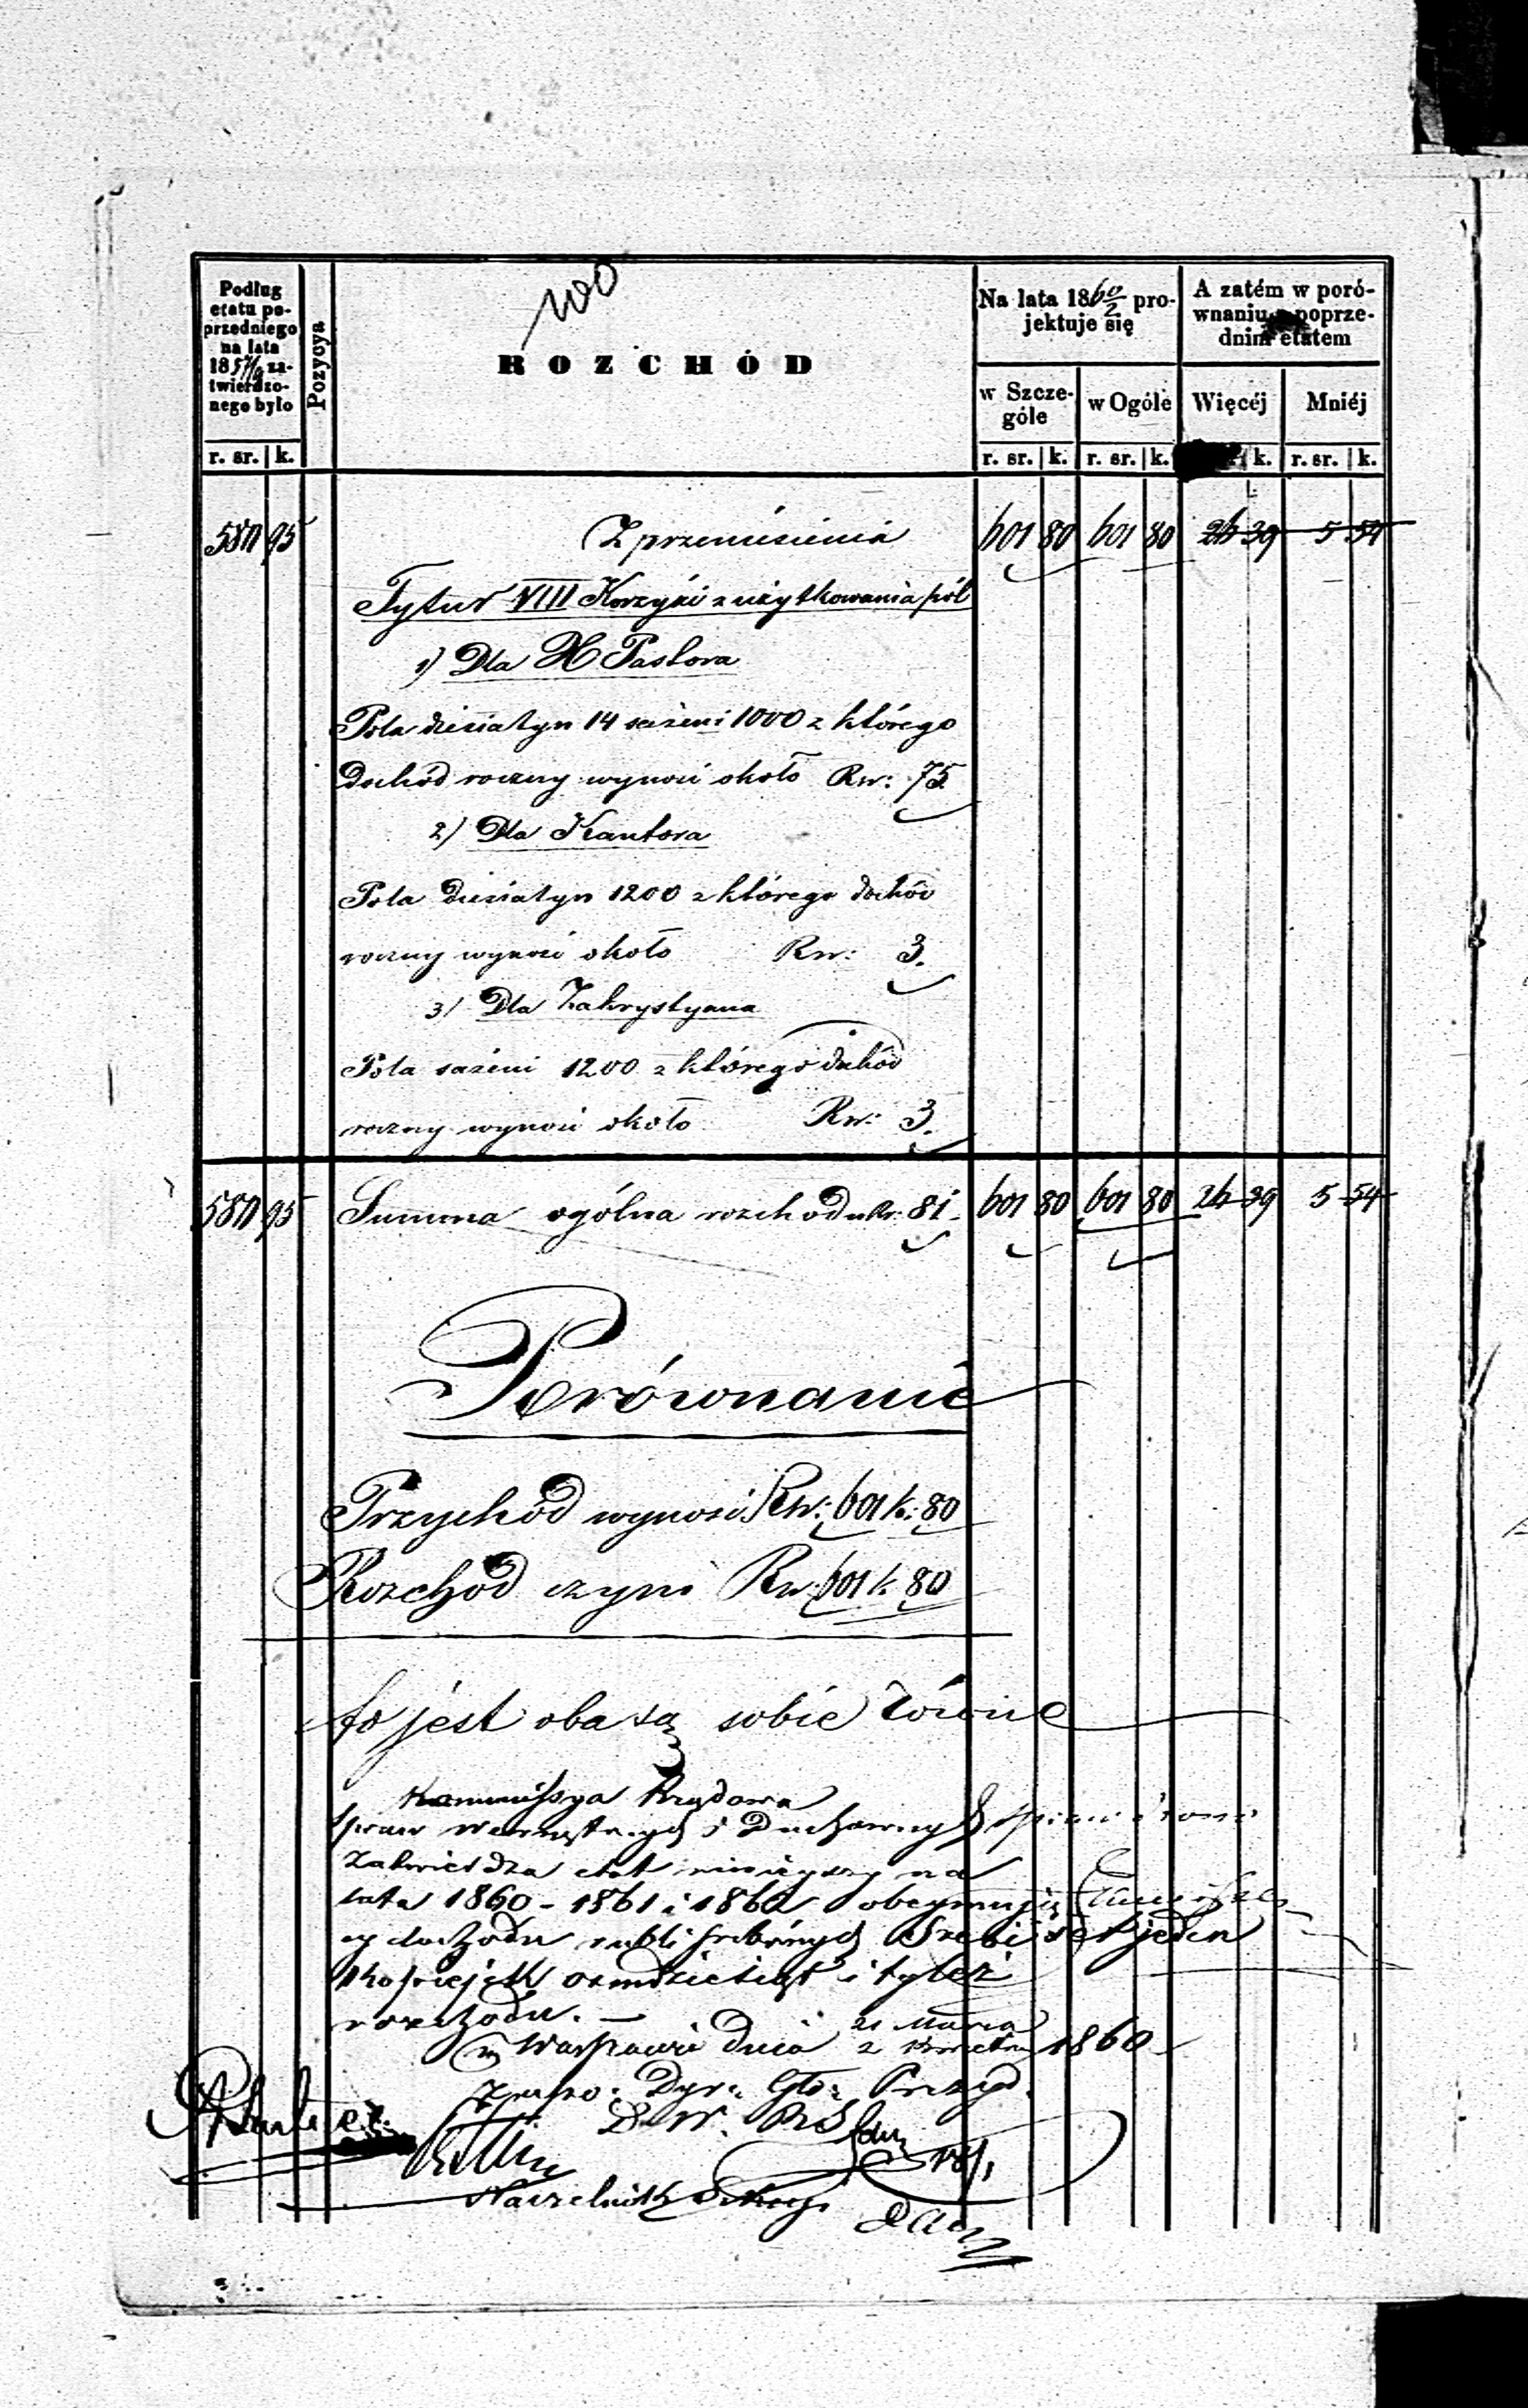 100
Podług
etatu po-
przedniego
na lata
1857/9 za-
twierdzo-
nego było
Pozycya
ROZCHÓD
Na lata 1860/2 pro-
jektuje się
A zatém w poró-
wnaniu z poprze-
dnim etatem
w Szcze-
góle
w Ogóle
Więcéj
Mniéj
r. sr. k.
r. sr. k. r. sr. k. k. r. sr. k.
580 95 Z przeniesienia 601 80 601 80 26 39 5 54
Tytuł VIII Korzyści z użytkowania pól
1) Dla X Pastora
Pola diesiatyn 14 sążeni 1000 z którego
dochód roczny wynosi około Rsr: 75.
2) Dla Kantora
Pola diesiatyn 1200 z którego dochód
roczny wynosi około Rsr: 3.
3) Dla Zakrystyana
Pola sążeni 1200 z którego dochód
roczny wynosi około Rsr: 3.
580 95 Summa ogólna rozchodu Rs: 81. 601 80 601 80 26 39 5 54
Porównanie
Przychód wynosi Rsr: 601 k: 80
Rozchód czyni Rsr: 601 k. 80
to jest oba są sobie równe
Kommissya Rządowa
Spraw Wewnętrznych i Duchownych
Zatwierdza etat niniejszy na
lata 1860 - 1861 i 1862 obeymujący
dochodu rubli srebrnych Sześćset jeden
kopiejek osmdziesiąt i tyleż
rozchodu. —
w Warszawie dnia 21 Marca
2 Kwietnia 1860
Dyr: Głó: Prezyd.
Naczelnik Sekcyi